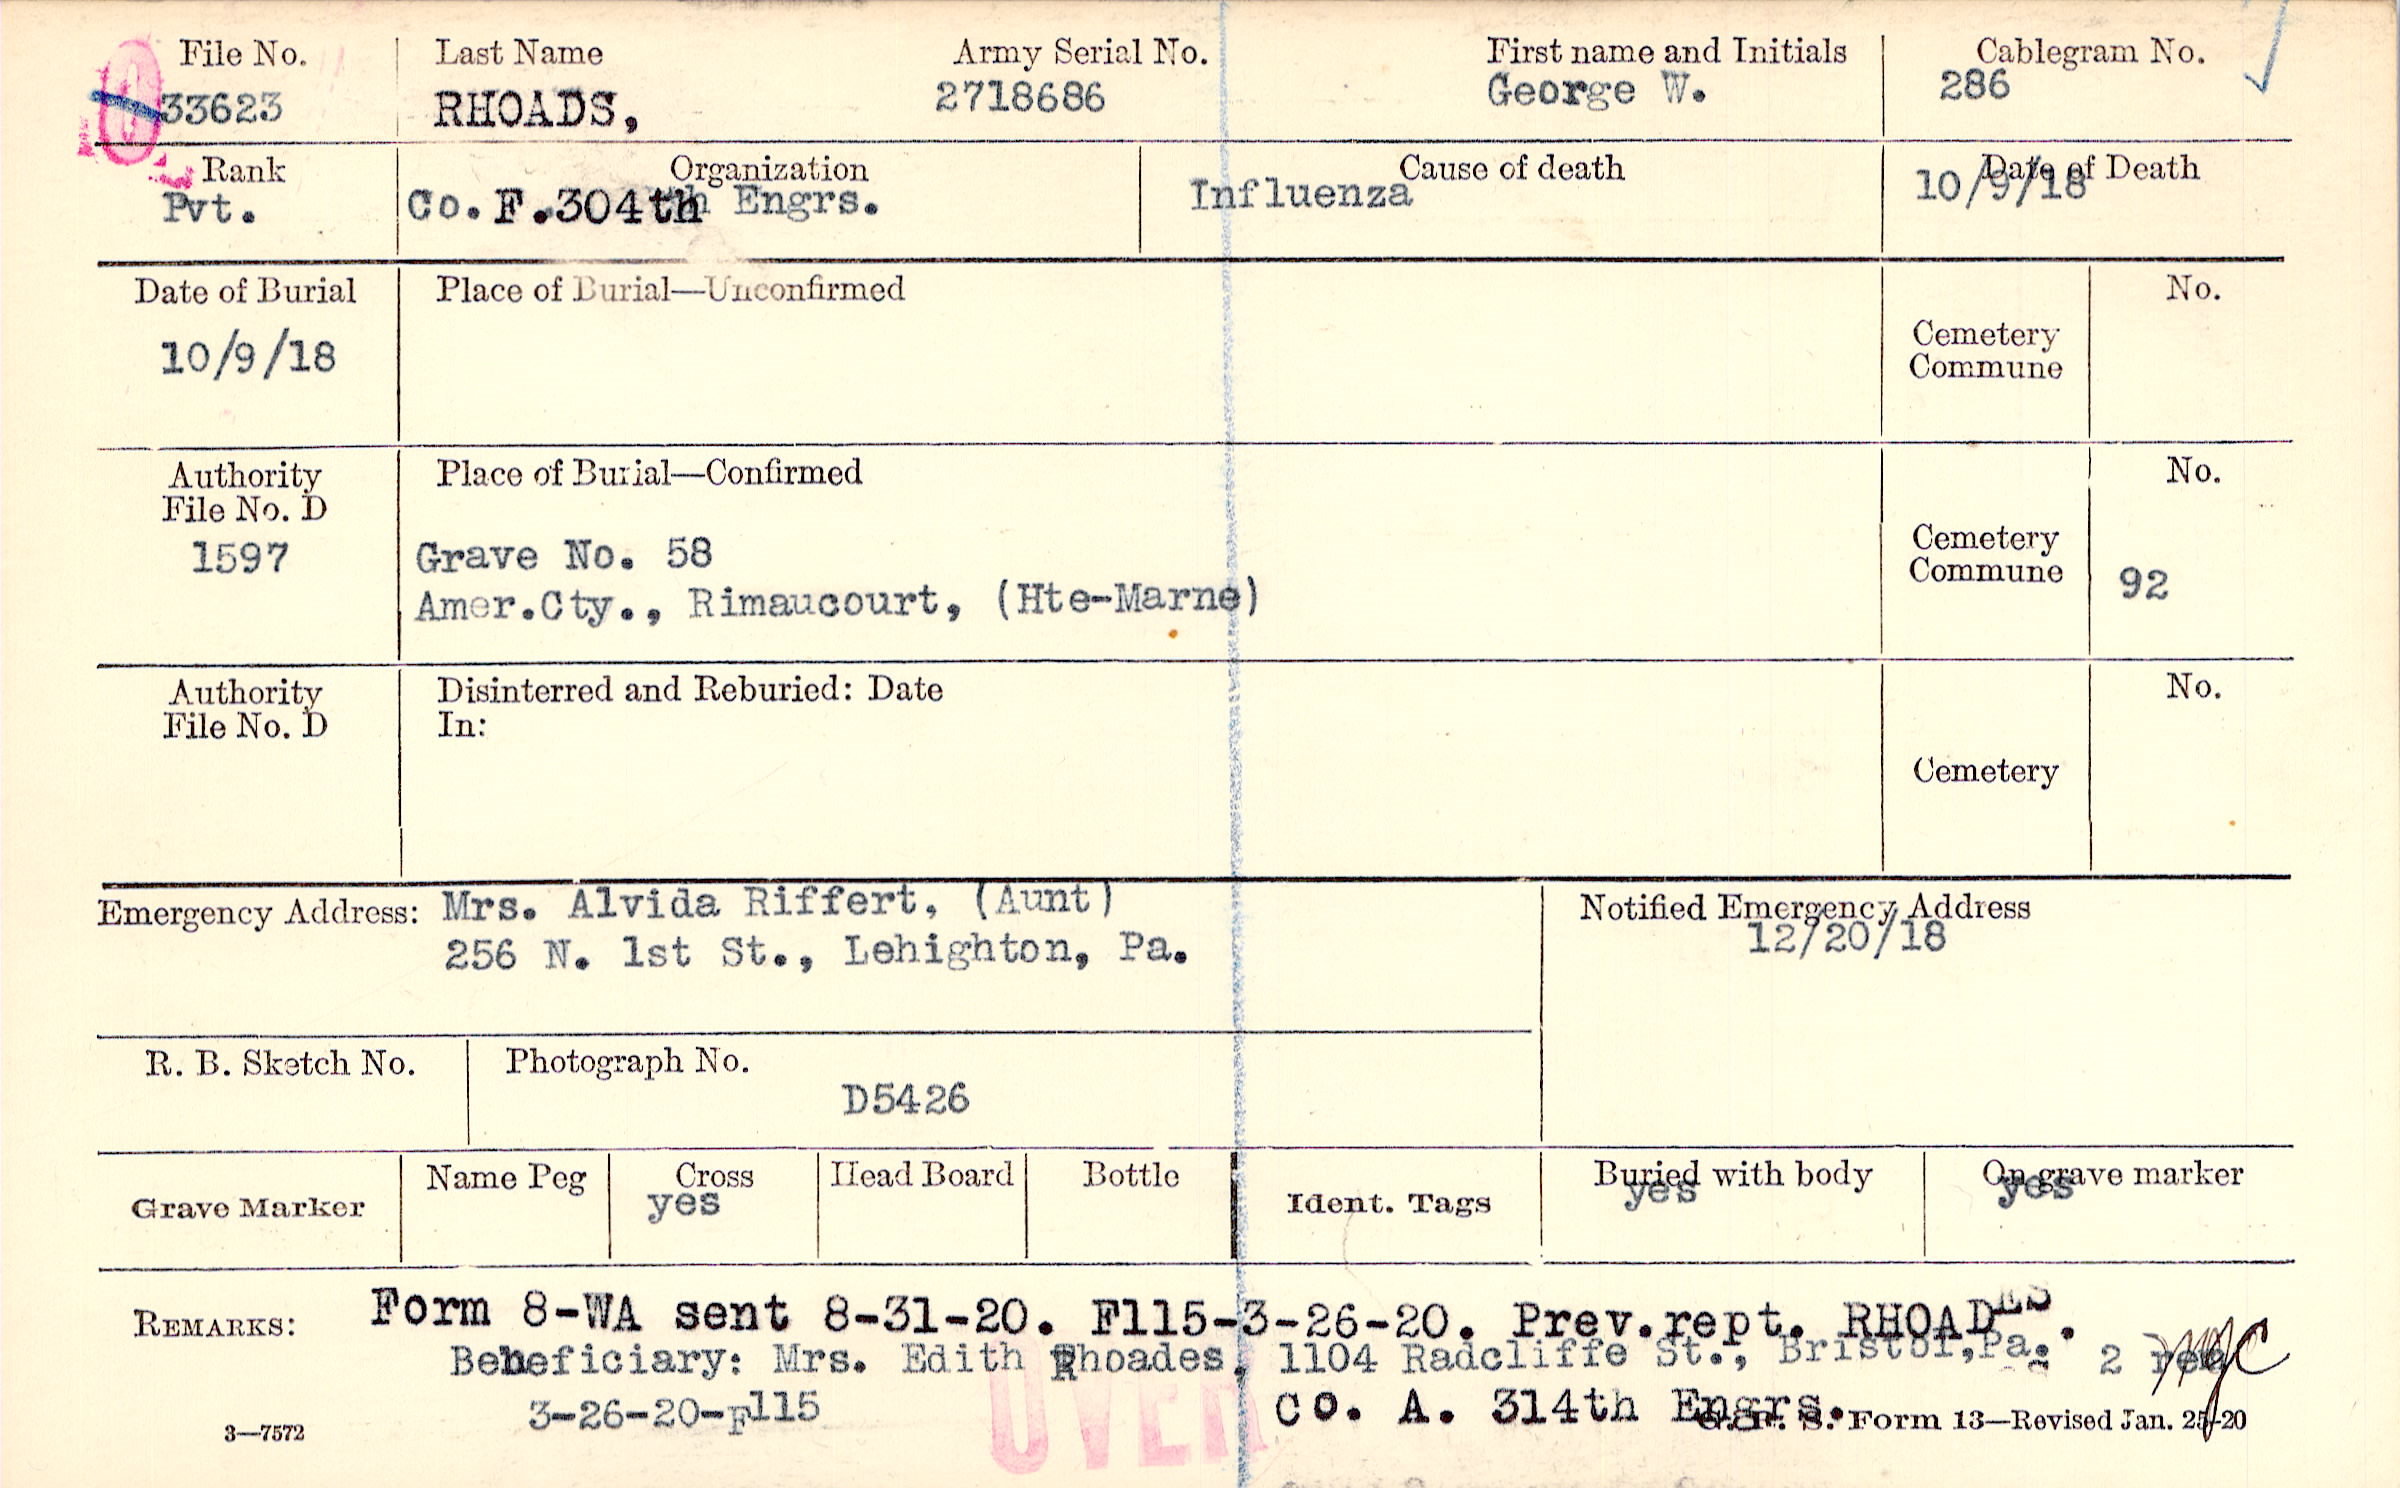 File No. Last Name Army Serial No. First name and Initials Cablegram No.
33623 RHOADS, 2718686 George W. 286
Rank Organization Cause of death Date of Death
Pvt. Co. F. 304th Engrs. Influenza 10/9/18
Date of Burial Place of Burial—Unconfirmed No.
10/9/18
Cemetery
Commune
Authority Place of Burial—Confirmed No.
File No. D
1597 Grave No. 58
Amer.Cty., Rimaucourt, (Hte-Marne)
Cemetery
Commune 92
Authority Disinterred and Reburied: Date No.
File No. D In:
Cemetery
Emergency Address: Mrs. Alvida Riffert, (Aunt)
256 N. 1st St., Lehighton, Pa.
Notified Emergency Address
12/20/18
R. B. Sketch No. Photograph No.
D5426
Grave Marker Name Peg Cross Head Board Bottle Ident. Tags Buried with body On grave marker
yes yes yes
REMARKS: Form 8-WA sent 8-31-20. F115-3-26-20. Prev.rept. RHOADES.
Beneficiary: Mrs. Edith Rhoades, 1104 Radcliffe St., Bristol,Pa. 2
3-26-20-F115 Co. A. 314th Engrs.
OVER
3—7572 G. R. S. Form 13—Revised Jan. 25-20